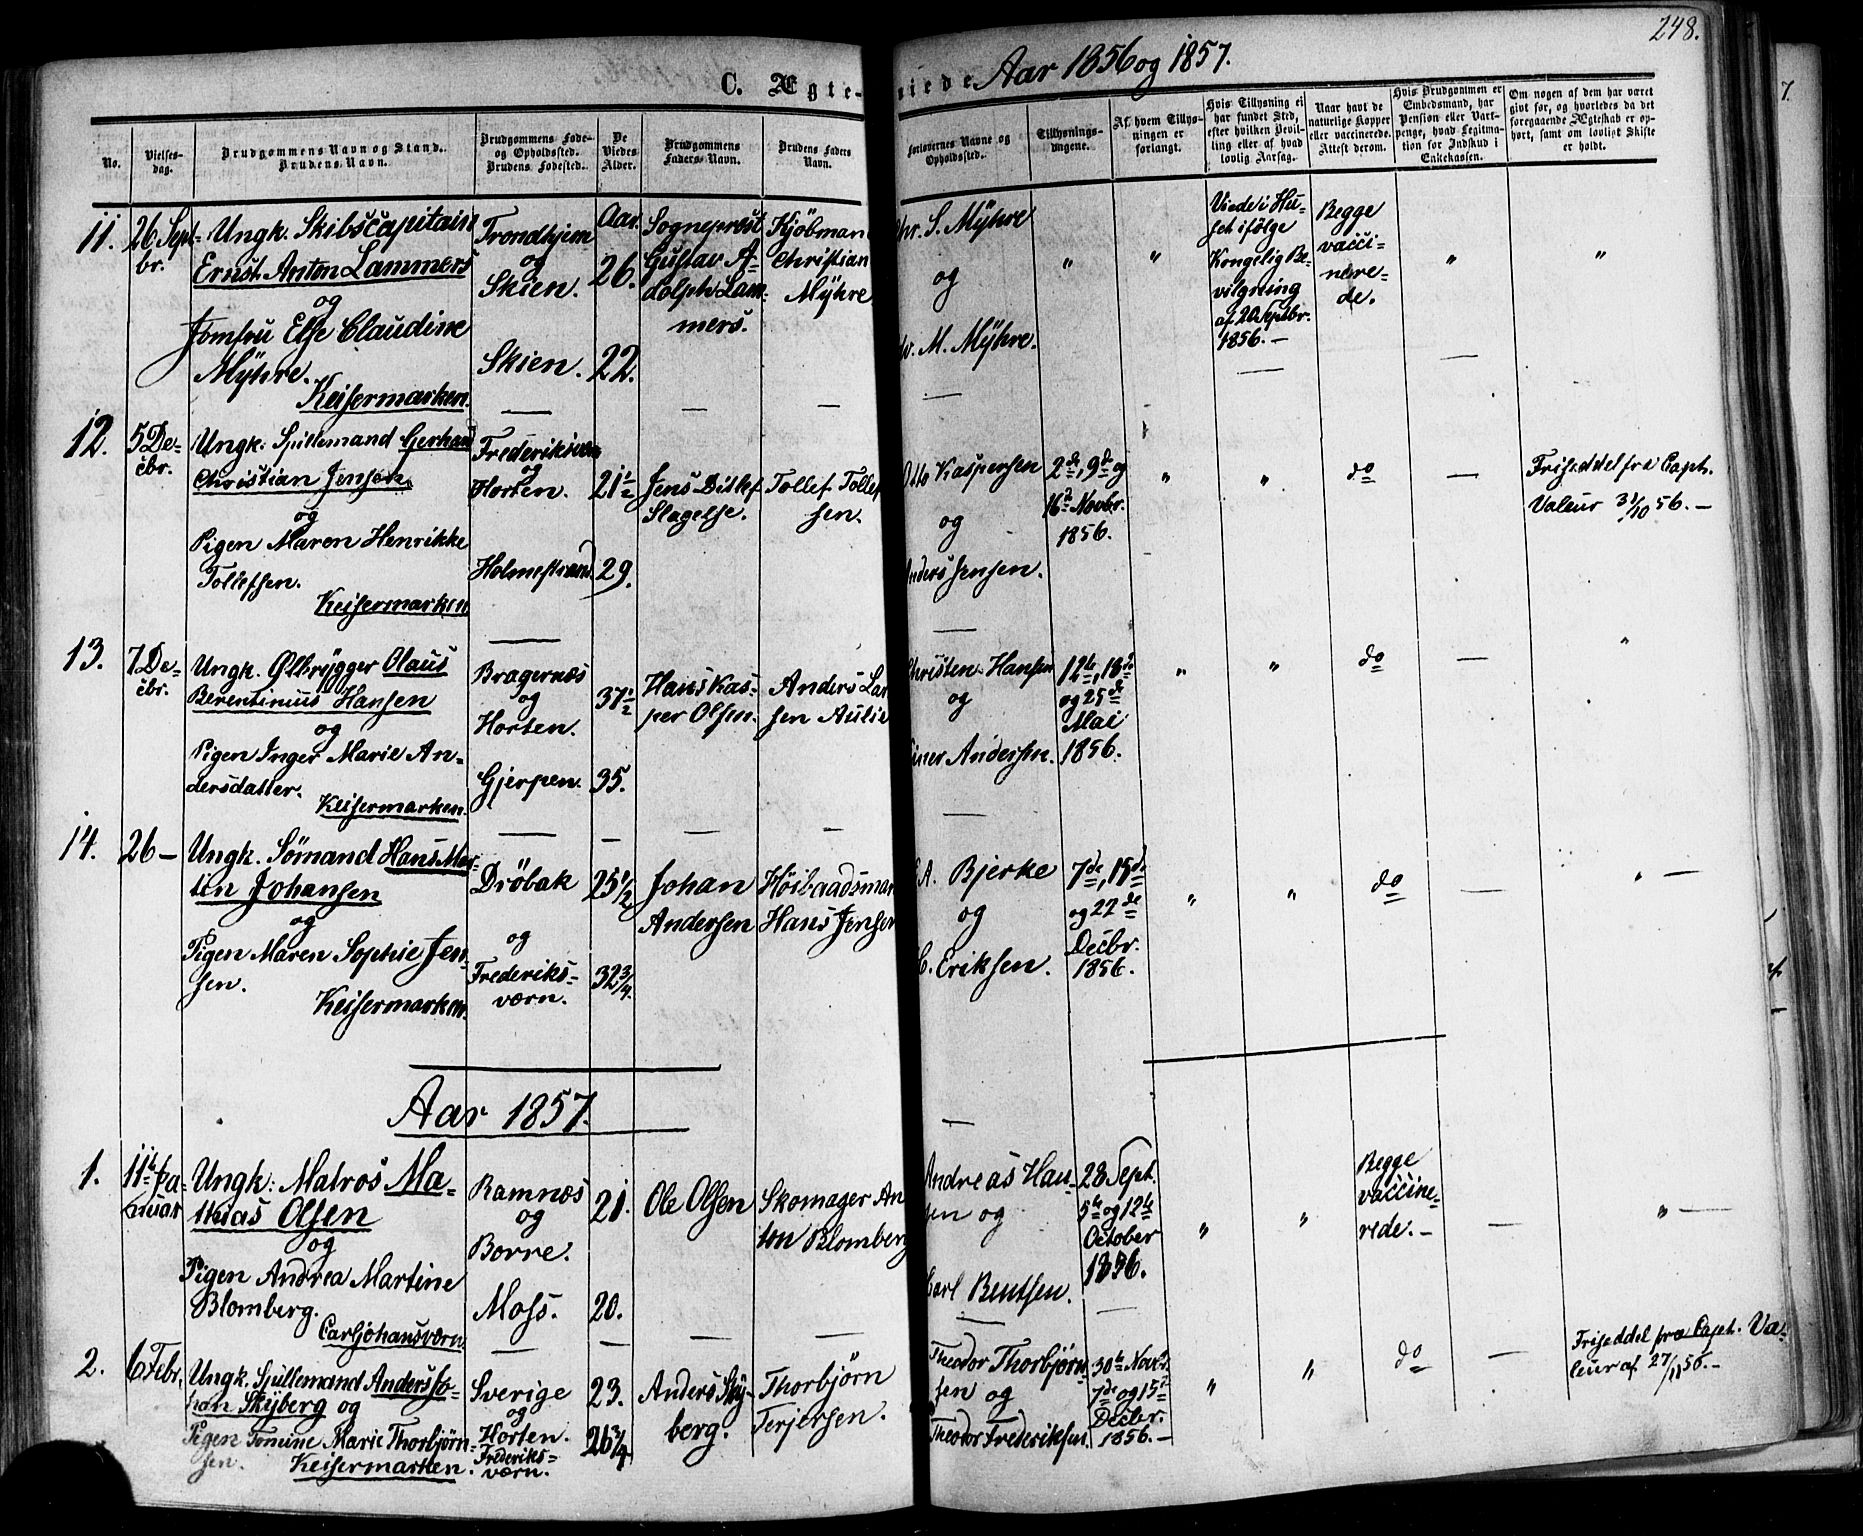 248.
C. Ægte- viede Aar 1856 og 1857.
No.
Vielses-
dag.
Brudgommens Navn og Stand.
Brudens Navn.
Brudgommens Føde-
og Opholdssted.
Brudens Fødested.
De
Viedes
Alder.
Brudgommens
Faders Navn.
Brudens Faders
Navn.
Forlovernes Navne og
Opholdssted.
Tillysnings-
dagene.
Af hvem Tillys-
ningen er
forlangt.
Hvis Tillysning ei
har fundet Sted,
efter hvilken Bevil-
ling eller af hvad
lovlig Aarsag.
Naar havt de
naturlige Kopper
eller vaccinerede.
Attest derom.
Hvis Brudgommen er
Embedsmand, har
Pension eller Vart-
penge, hvad Legitima-
tion for Indskud i
Enkekassen.
Om nogen af dem har været
gift før, og hvorledes da det
foregaaende Ægteskab er op-
hørt, samt om lovligt Skifte
er holdt.
11.
26 Sept-
br.
Ungk. Skibscapitain
Ernst Anton Lammers
og
Jomfru Else Claudine
Myhre.
Keisermarken.
Trondhjem
og
Skien.
Skien.
Aar.
26.
22.
Sogneprest
Gustav A-
dolph Lam-
mers.
Kjöbman
Christian
Myhre
Chr. S. Myhre
og
M. Myhre.
"
"
Viede i Hu-
set ifölge
Kongelig Be-
vilgning
af 20 Septbr.
1856. —
Begge
vacci-
nere-
de.
"
"
12.
5 De-
cbr.
Ungk. Spillemand Gerhard
Christian Jensen.
og
Pigen Maren Henrikke
Tollefsen.
Keisermarken
Frederiksværn
og
Horten.
Holmestrand
21½
29.
Jens Ditlef
Slagelse.
Tollef Tollef
sen.
Otto Kaspersen
og
Anders Jensen.
2de, 9de og
16de Novbr.
1856.
"
"
do
—
Friseddel fra Capt.
Valeur 31/10 56. —
13.
7 De-
cbr.
Ungk. Ølbrygger Olaus
Berentinius Hansen
og
Pigen Inger Marie An-
dersdatter.
Keisermarken.
Bragernæs
og
Horten.
Gjerpen.
37½
35.
Hans Kas-
per Olsen.
Anders Lar
sen Aulie
Christen Hansen
og
Einer Andersen.
12te, 18de
og 25de
Mai
1856.
"
"
do
—
"
14.
26 —
Ungk. Sömand Hans Mar-
tin Johansen
og
Pigen Maren Sophie Jen-
sen.
Keisermarken.
Dröbak
og
Frederiks-
værn.
25½
32¾.
Johan
Andersen
Höibaadsman
Hans Jensen
A. Bjerke
og
C. Eriksen.
7de, 15de
og 22de
Decbr.
1856.
"
"
do
—
" —
Aar 1857.
1.
11te Ja-
nuar
Ungk: Matros Ma-
thias Olsen
og
Pigen Andrea Martine
Blomberg.
Carljohansværn.
Ramnæs
og
Borre.
Moss.
21.
20.
Ole Olsen
Skomager An
ton Blomberg
Andreas Han-
sen og
Carl Bentsen.
28 Sept.
5te og 12te
October
1856.
"
"
Begge
vaccine-
rede. —
—
" —
2.
6 Febr.
Ungk. Spillemand Anders Jo-
han Skyberg og
Pigen Tomine Marie Thorbjørn-
sen.
Keisermarken.
Sverige
og
Horten.
Frederiks-
værn.
23.
26¾
Anders Sky-
berg.
Thorbjörn
Terjersen.
Theodor Thorbjørn-
sen og
Theodor Frederiksen.
30te Novbr.
7de og 15de
Decbr.
1856. —
"
"
do
—
Friseddel fra Capt. Va-
leur af 27/11 56. —